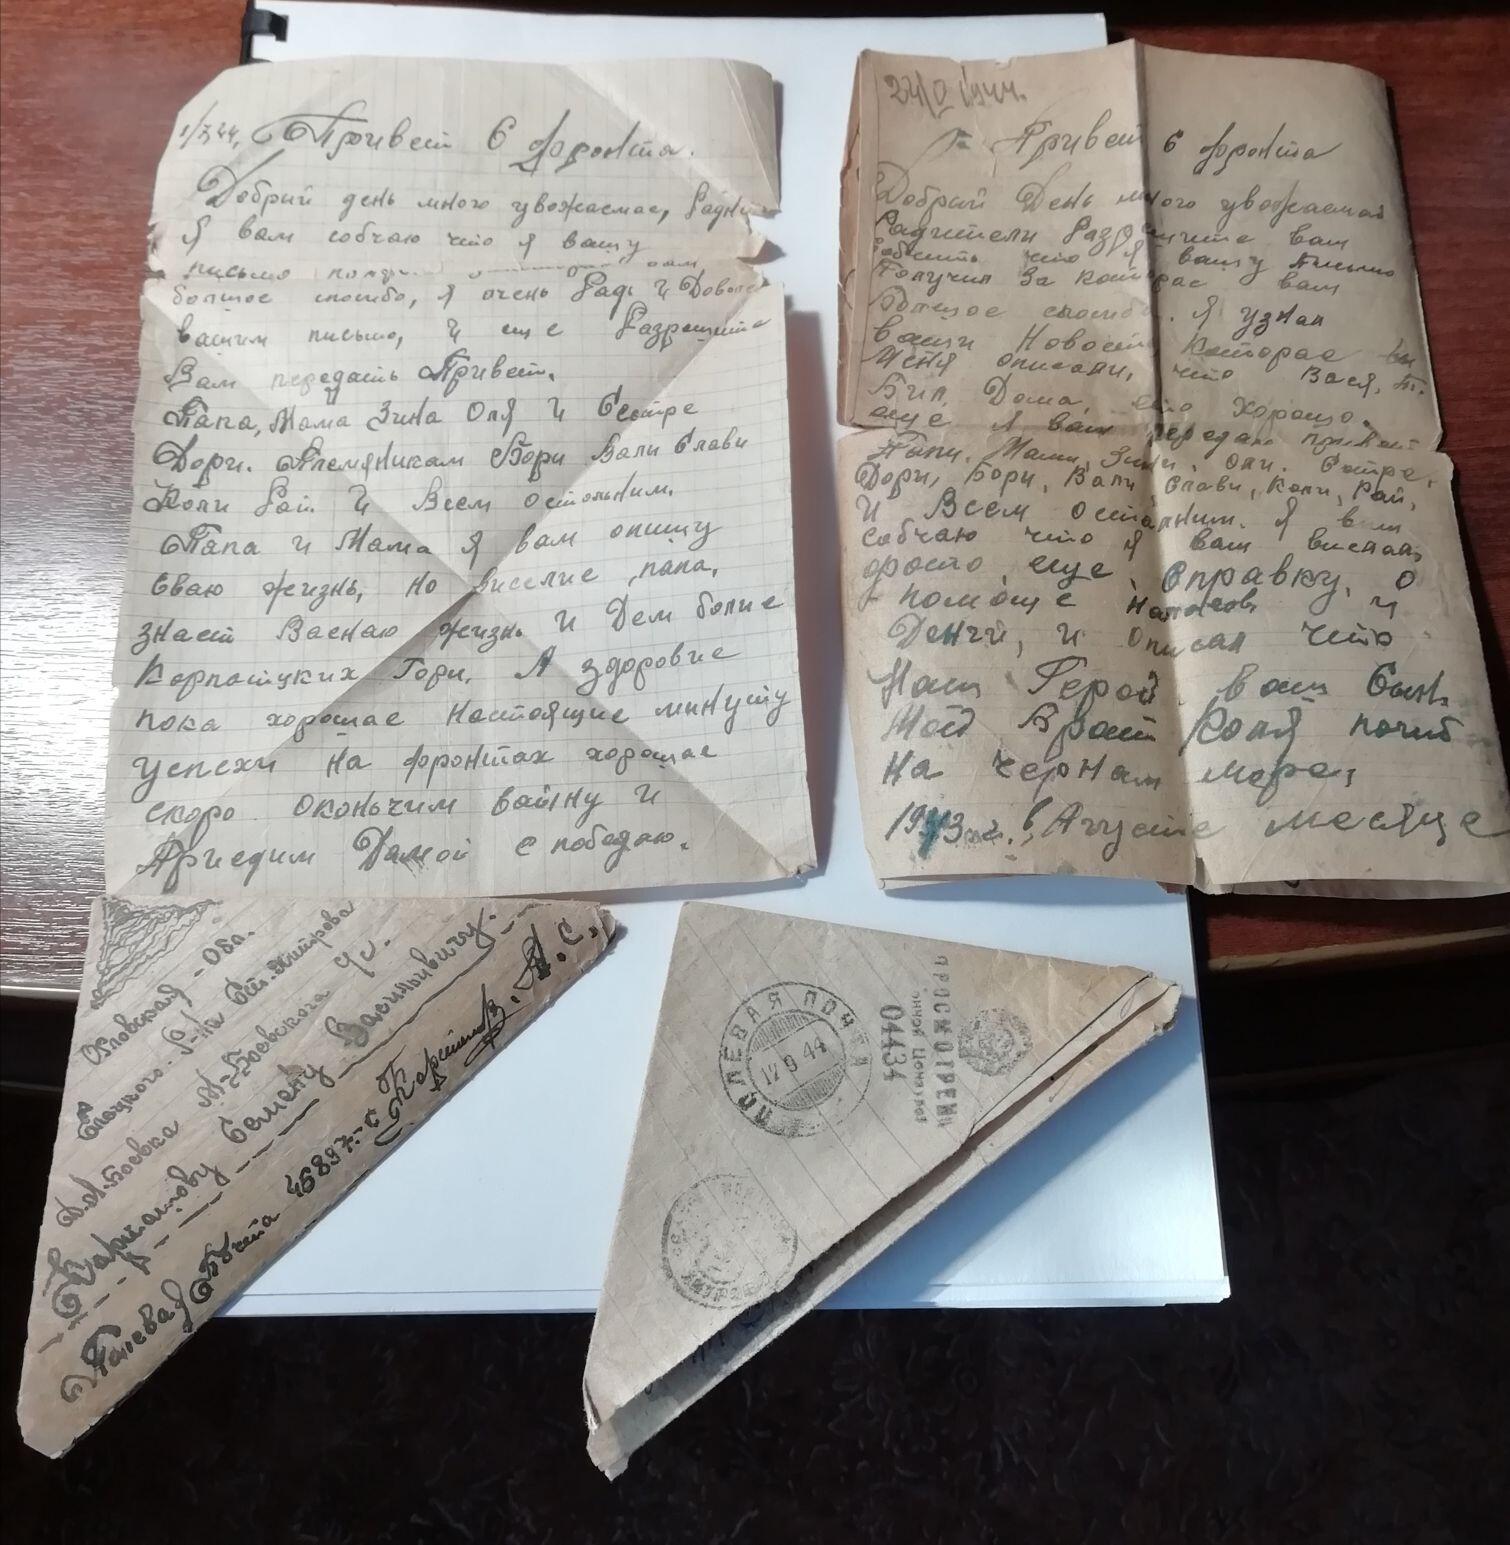 Привет С фронта.
Добрий день много увожаемае, Радни
Я вам собчаю что я вашу
письмо
болшое спосибо, я очень Радь и Довол
вашим письмо, и еще Разрешите
Вам передать Привет.
Папа, Мама Зина Оля и Сестре
Дори. Племяникам Бори Вали Слави
Коли Раи И Всем остольним.
Папа и Мама Я вам опишу
Сваю жизнь, но виселие папа,
знает Ваеную жизнь И Дем болие
Карпатских Гори. А здоровие
пока хорошае Настоящие минуту
успехи на фронтах хорошае
скоро оконьчим вайну и
Приедим Дамой с победаю.
1944г.
Привет С фронта
Добрий День много увожаемой
Радители Разрешите вам
собчить что Я вашу письмо
Получил За Которае вам
Болшое спосибо. Я узнал
ваши Новости, Которае ви
Меня описали, что Вася,
Бил Дома, ето хорошо.
еще Я вам передаю привет
Папи. Мами, Зини, Оли. Сестре,
Дори, Бори, Вали, Слави, Коли, Раи,
И Всем остальним. Я вам
собчаю что Я вам вислал
фото, еще Справку, о
помоще и
Деньги, и Описал что
Наш Герой ваш Сын.
Мой Брат Коля погиб
На черном море,
1943 г. в Августе месяце
Орловская - Оба.
Елецкого. Р-на
Д.А.Боевка А-Боевского с/с.
Каршатову Семену Васильивичу.
Палевая Почта 46897-с
А.С.
ПОЛЕВАЯ ПОЧТА
12 9 44
ПРОСМОТРЕНО
Военной Цензурой
04434